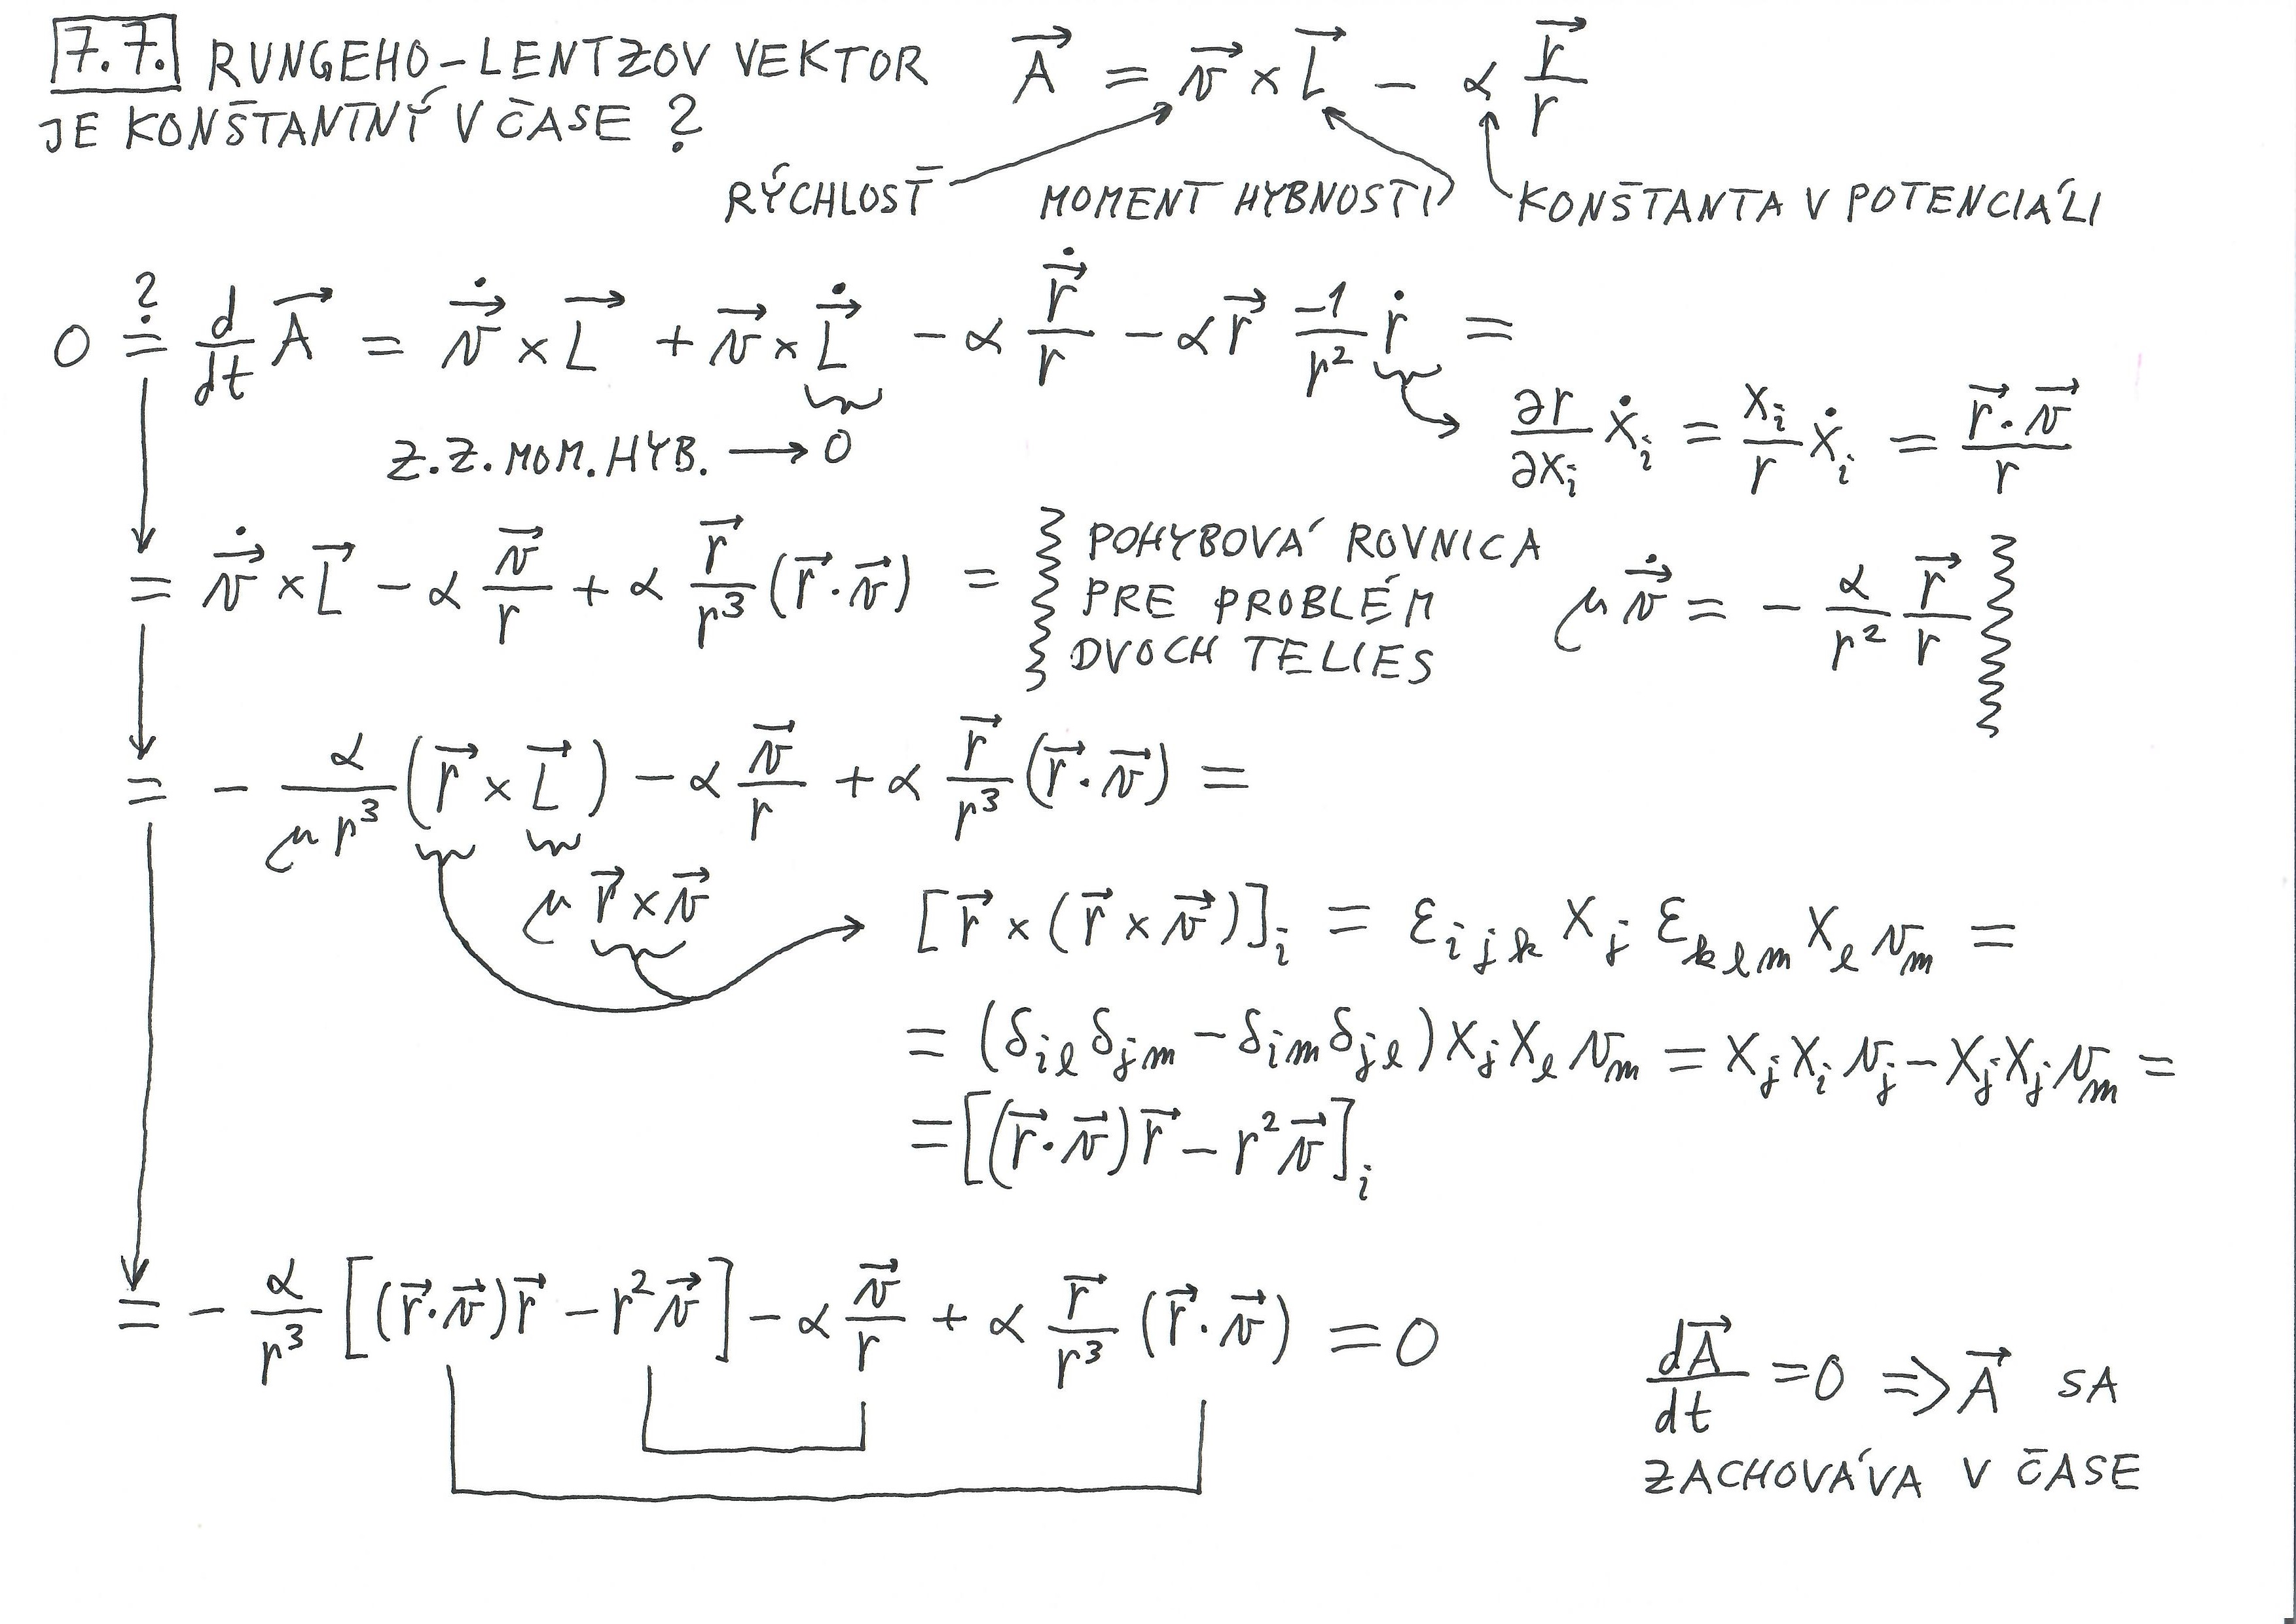 7.7. RUNGEHO-LENTZOV VEKTOR $\vec{A} = \vec{v} \times \vec{L} - \alpha \frac{\vec{r}}{r}$
JE KONŠTANTNÝ V ČASE ?
RÝCHLOSŤ MOMENT HYBNOSTI KONŠTANTA V POTENCIÁLI
$0 \stackrel{?}{=} \frac{d}{dt}\vec{A} = \dot{\vec{v}} \times \vec{L} + \vec{v} \times \dot{\vec{L}} - \alpha \frac{\dot{\vec{r}}}{r} - \alpha \vec{r} \frac{-1}{r^2} \dot{r} =$
Z.Z.MOM.HYB. → 0
$\frac{\partial r}{\partial x_i} \dot{x}_i = \frac{x_i}{r} \dot{x}_i = \frac{\vec{r} \cdot \vec{v}}{r}$
$= \dot{\vec{v}} \times \vec{L} - \alpha \frac{\vec{v}}{r} + \alpha \frac{\vec{r}}{r^3} (\vec{r} \cdot \vec{v}) =$
POHYBOVÁ ROVNICA
PRE PROBLÉM
DVOCH TELIES
$\mu \dot{\vec{v}} = - \frac{\alpha}{r^2} \frac{\vec{r}}{r}$
$= - \frac{\alpha}{\mu r^3} (\vec{r} \times \vec{L}) - \alpha \frac{\vec{v}}{r} + \alpha \frac{\vec{r}}{r^3} (\vec{r} \cdot \vec{v}) =$
$\mu \vec{r} \times \vec{v}$
$[\vec{r} \times (\vec{r} \times \vec{v})]_i = \varepsilon_{ijk} x_j \varepsilon_{klm} x_l v_m =$
$= (\delta_{il} \delta_{jm} - \delta_{im} \delta_{jl}) x_j x_l v_m = x_j x_i v_j - x_j x_j v_m =$
$= [(\vec{r} \cdot \vec{v}) \vec{r} - r^2 \vec{v}]_i$
$= - \frac{\alpha}{r^3} [(\vec{r} \cdot \vec{v}) \vec{r} - r^2 \vec{v}] - \alpha \frac{\vec{v}}{r} + \alpha \frac{\vec{r}}{r^3} (\vec{r} \cdot \vec{v}) = 0$
$\frac{d\vec{A}}{dt} = 0 \Rightarrow \vec{A}$ SA
ZACHOVÁVA V ČASE